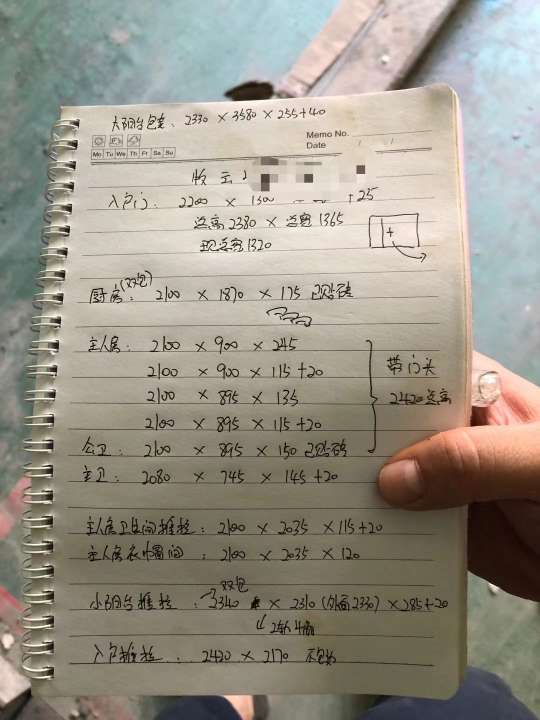 大阳台包套：2330 × 3580 × 255+40
Memo No.
Mo Tu We Th Fr Sa Su
Date
入户门：2200 × 1300 +25
总高 2380 × 总宽 1365
现总宽 1320
厨房(双包)：2100 × 1870 × 175 已贴砖
主人房：2100 × 900 × 245
2100 × 900 × 115+20
2100 × 895 × 135
2100 × 895 × 115+20
公卫：2100 × 895 × 150 已贴砖
带门头
2420总高
主卫：2080 × 745 × 145+20
主人房卫生间推拉：2100 × 2035 × 115+20
主人房衣帽间：2100 × 2035 × 120
双包
小阳台推拉：2340 × 2310 (外高2330) × 285+20
入户推拉：2420 × 2170 不包